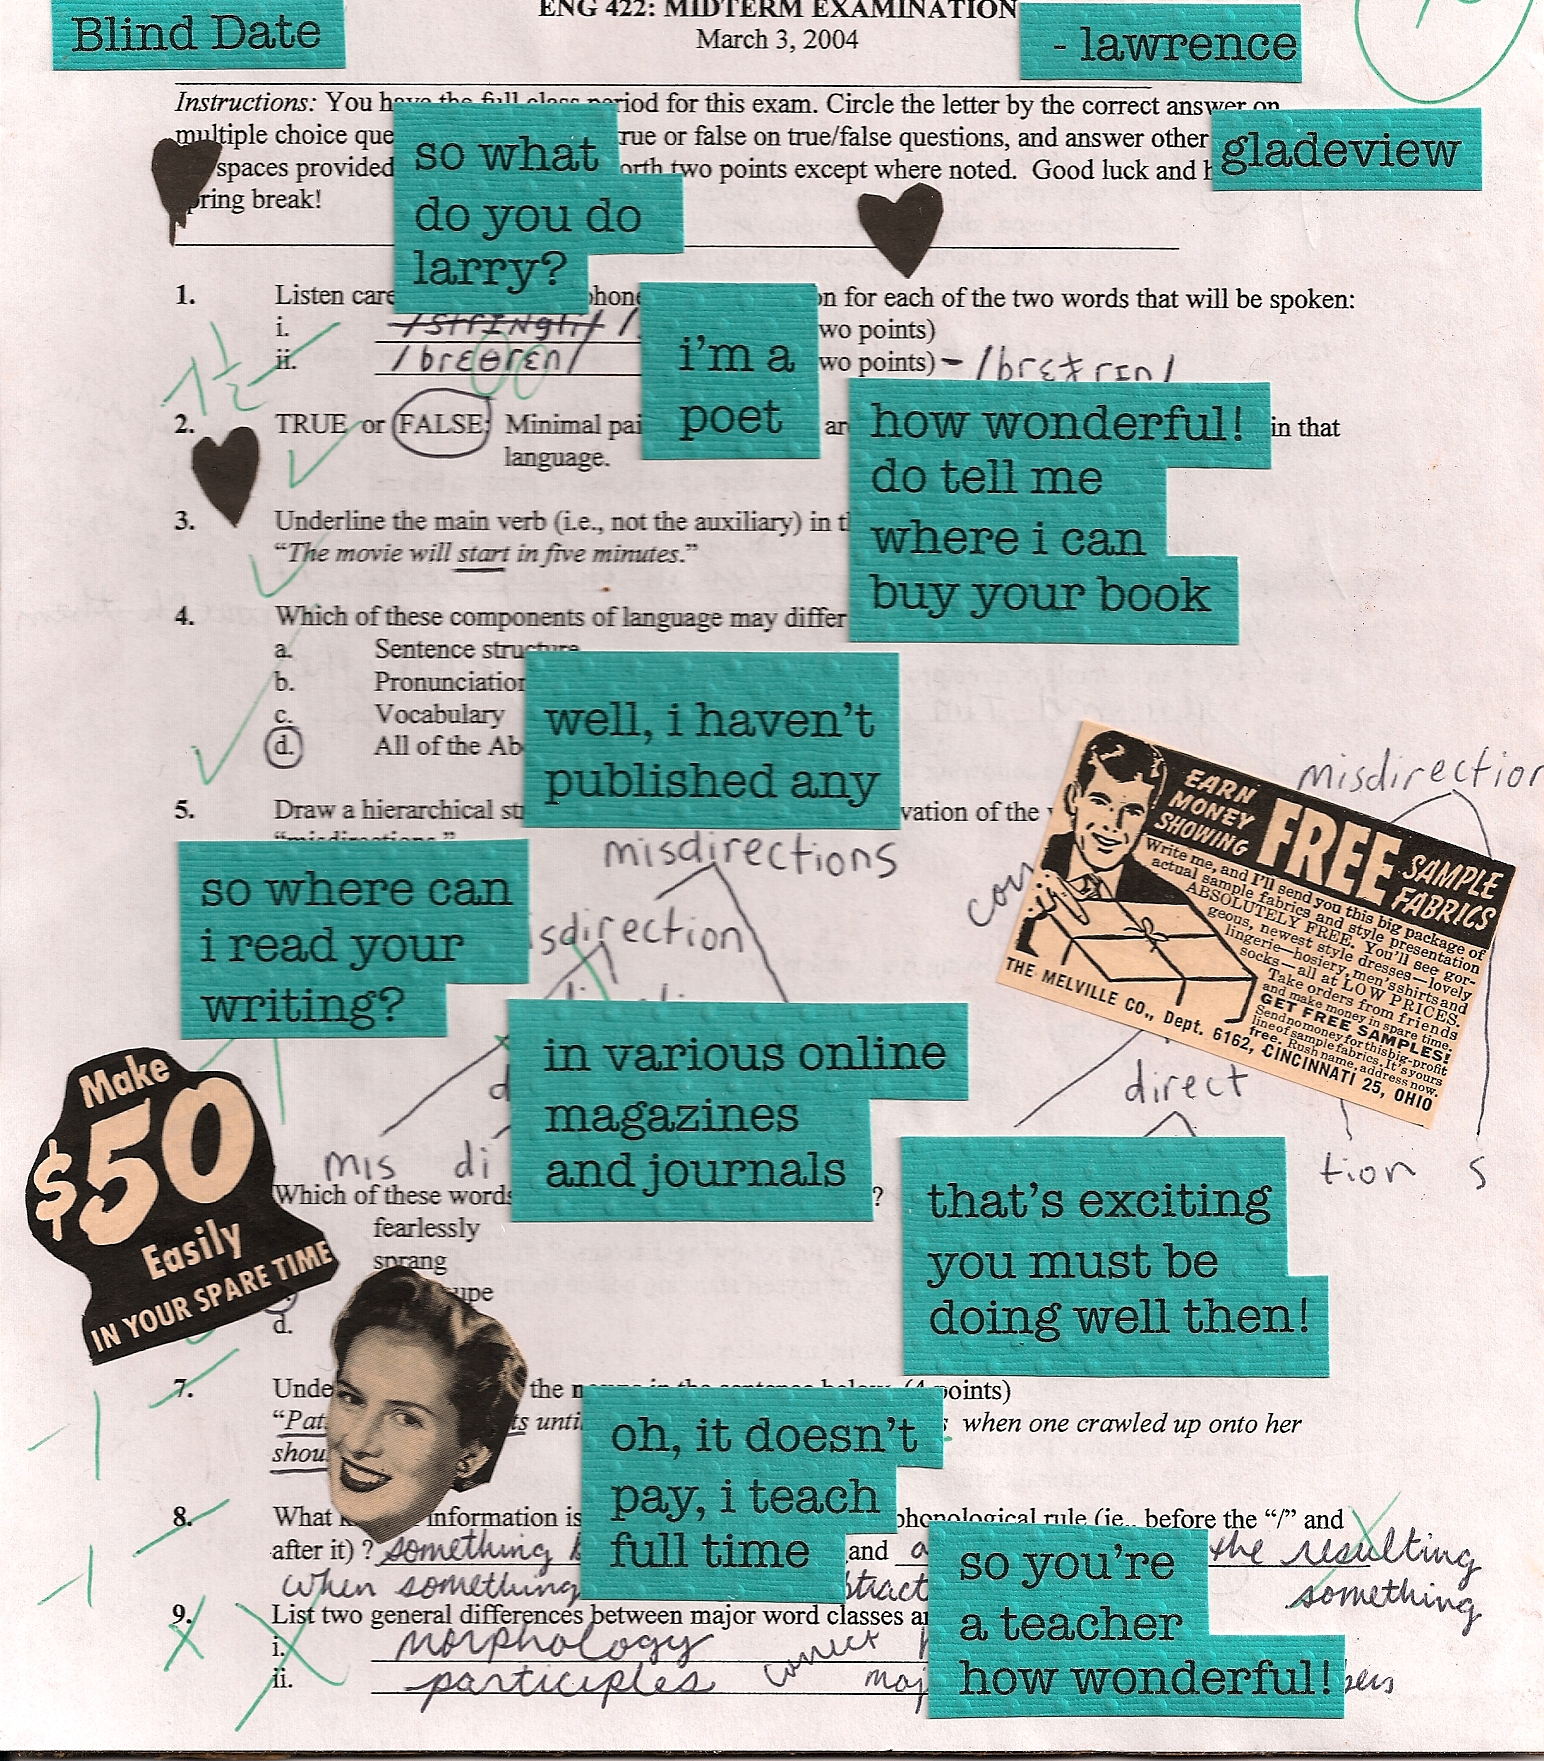 Blind Date
- lawrence
gladeview
ENG 422: MIDTERM EXAMINATION
March 3, 2004
Instructions: You have the full class period for this exam. Circle the letter by the correct answer on
multiple choice que
rue or false on true/false questions, and answer other
spaces provided
orth two points except where noted. Good luck and h
pring break!
so what
do you do
larry?
1. Listen care
phone
on for each of the two words that will be spoken:
i.
wo points)
ii. /brɛθrɛn/
wo points) -
i'm a
poet
2. TRUE or FALSE: Minimal pai
ar
in that
language.
how wonderful!
do tell me
where i can
buy your book
3. Underline the main verb (i.e., not the auxiliary) in th
“The movie will start in five minutes.”
4. Which of these components of language may differ
a. Sentence structure
b. Pronunciation
c. Vocabulary
d. All of the Ab
well, i haven't
published any
5. Draw a hierarchical st
vation of the
“misdirections.”
misdirections
sdirection
misdirection
direct
tion s
mis di
so where can
i read your
writing?
EARN
MONEY
SHOWING
FREE
SAMPLE
FABRICS
Write me, and I'll send you this big package of
actual sample fabrics and style presentation
ABSOLUTELY FREE. You'll see gor-
geous, newest style dresses—lovely
lingerie—hosiery, men's shirts and
socks—all at LOW PRICES.
Take orders from friends
and make money in spare time.
GET FREE SAMPLES!
Send no money for this big-profit
line of sample fabrics. It's yours
free. Rush name, address now.
THE MELVILLE CO., Dept. 6162, CINCINNATI 25, OHIO
in various online
magazines
and journals
Make
$50
Easily
IN YOUR SPARE TIME
Which of these words
?
fearlessly
sprang
upe
d.
that's exciting
you must be
doing well then!
7. Unde
the nouns in the sentence below. (4 points)
“Pat
ts unti
when one crawled up onto her
shou
oh, it doesn't
pay, i teach
full time
8. What
information is
phonological rule (ie., before the “/” and
after it) ? something
and
the resulting
when something
something
so you're
a teacher
how wonderful!
9. List two general differences between major word classes a
i. morphology
correct
ii. participles
maj